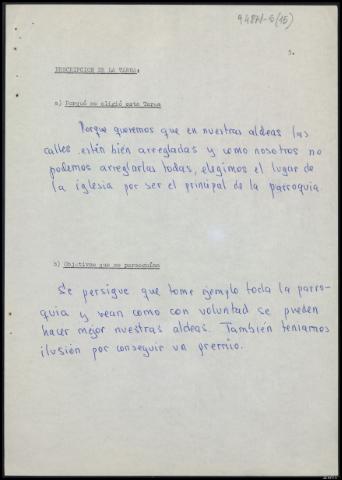 5.
DESCRIPCION DE LA TAREA:
a) Porqué se eligió esta Tarea
Porque queremos que en nuestras aldeas las
calles estén bien arregladas y como nosotros no
podemos arreglarlas todas, elegimos el lugar de
la iglesia por ser el principal de la parroquia
b) Objetivos que se perseguían
Se persigue que tome ejemplo toda la parro-
quia y vean como con voluntad se pueden
hacer mejor nuestras aldeas. También teníamos
ilusión por conseguir un premio.